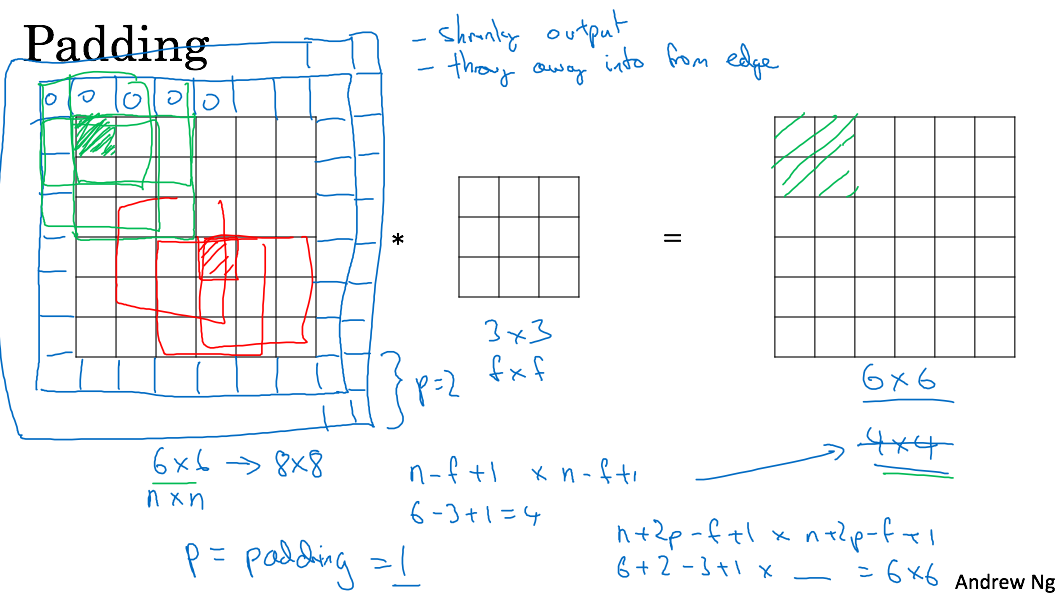 Padding
- shrinky output
- throw away info from edge
0 0 0 0 0
*
=
3 × 3
f × f
p=2
6 × 6
4 × 4
6 × 6 → 8×8
n × n
n-f+1 × n-f+1
6-3+1=4
n+2p-f+1 × n+2p-f+1
6+2-3+1 × __ = 6×6
p = padding = 1
Andrew Ng